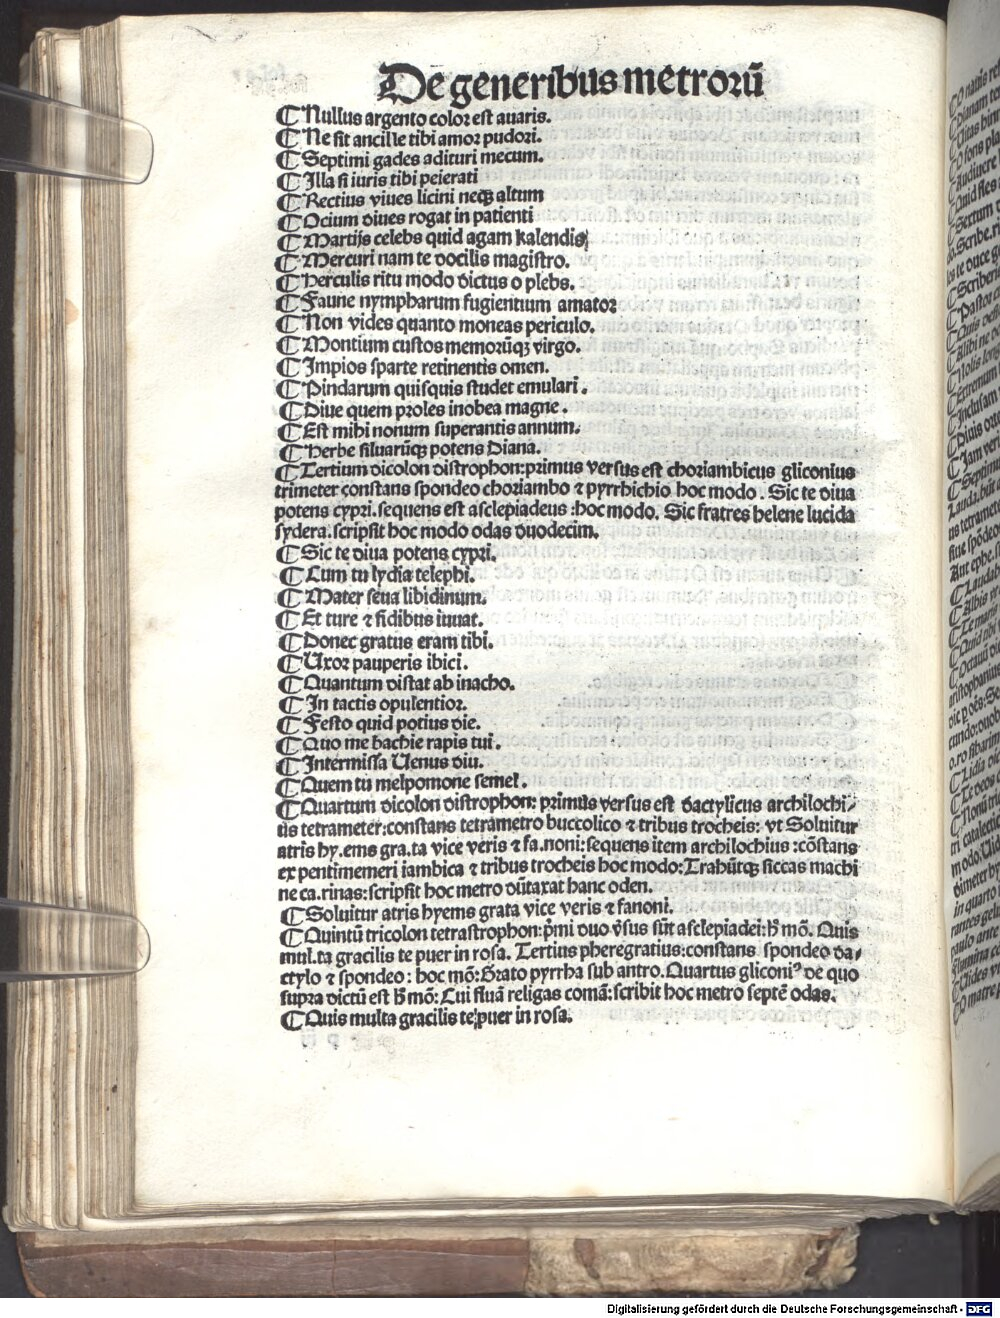 De generibus metrorū
¶ Nullus argento color est auaris.
¶ Ne sit ancille tibi amor pudori.
¶ Septimi gades adituri mecum.
¶ Illa si iuris tibi peierati
¶ Rectius viues licini neqꝫ altum
¶ Ocium diues rogat in patienti
¶ Martijs celebs quid agam kalendis
¶ Mercuri nam te docilis magistro.
¶ Herculis ritu modo dictus o plebs.
¶ Faune nympharum fugientium amator
¶ Non vides quanto moneas periculo.
¶ Montium custos memorūqꝫ virgo.
¶ Impios sparte retinentis omen.
¶ Pindarum quisquis studet emulari.
¶ Diue quem proles inobea magne.
¶ Est mihi nonum superantis annum.
¶ Herbe siluarūqꝫ potens Diana.
¶ Tertium dicolon distrophon:primus versus est choriambicus gliconius
trimeter constans spondeo choriambo ⁊ pyrrhichio hoc modo. Sic te diua
potens cypri.sequens est asclepiadeus :hoc modo. Sic fratres helene lucida
sydera.scripsit hoc modo odas duodecim.
¶ Sic te diua potens cypri.
¶ Cum tu lydia telephi.
¶ Mater seua libidinum.
¶ Et ture ⁊ fidibus iuuat.
¶ Donec gratus eram tibi.
¶ Uxor pauperis ibici.
¶ Quantum distat ab inacho.
¶ In tactis opulentior.
¶ Festo quid potius die.
¶ Quo me bachie rapis tui.
¶ Intermissa Uenus diu.
¶ Quem tu melpomone semel.
¶ Quartum dicolon distrophon: primus versus est dactylicus archilochi/
us tetrameter:constans tetrametro buccolico ⁊ tribus trocheis: vt Soluitur
atris hy.ems gra.ta vice veris ⁊ fa.noni:sequens item archilochius :cōstans
ex pentimemeri iambica ⁊ tribus trocheis hoc modo:Trahūtqꝫ siccas machi
ne ca.rinas:scripsit hoc metro dūtaxat hanc oden.
¶ Soluitur atris hyems grata vice veris ⁊ fanoni.
¶ Quintū tricolon tetrastrophon:p̄mi duo v̄sus sūt asclepiadei:h̄ mō. Quis
mul.ta gracilis te puer in rosa. Tertius pheregratius:constans spondeo da/
ctylo ⁊ spondeo : hoc mō:Grato pyrrha sub antro.Quartus gliconiꝰ de quo
supra dictū est h̄ mō: Cui flauā religas comā:scribit hoc metro septē odas.
¶ Quis multa gracilis te puer in rosa.
Digitalisierung gefördert durch die Deutsche Forschungsgemeinschaft - DFG